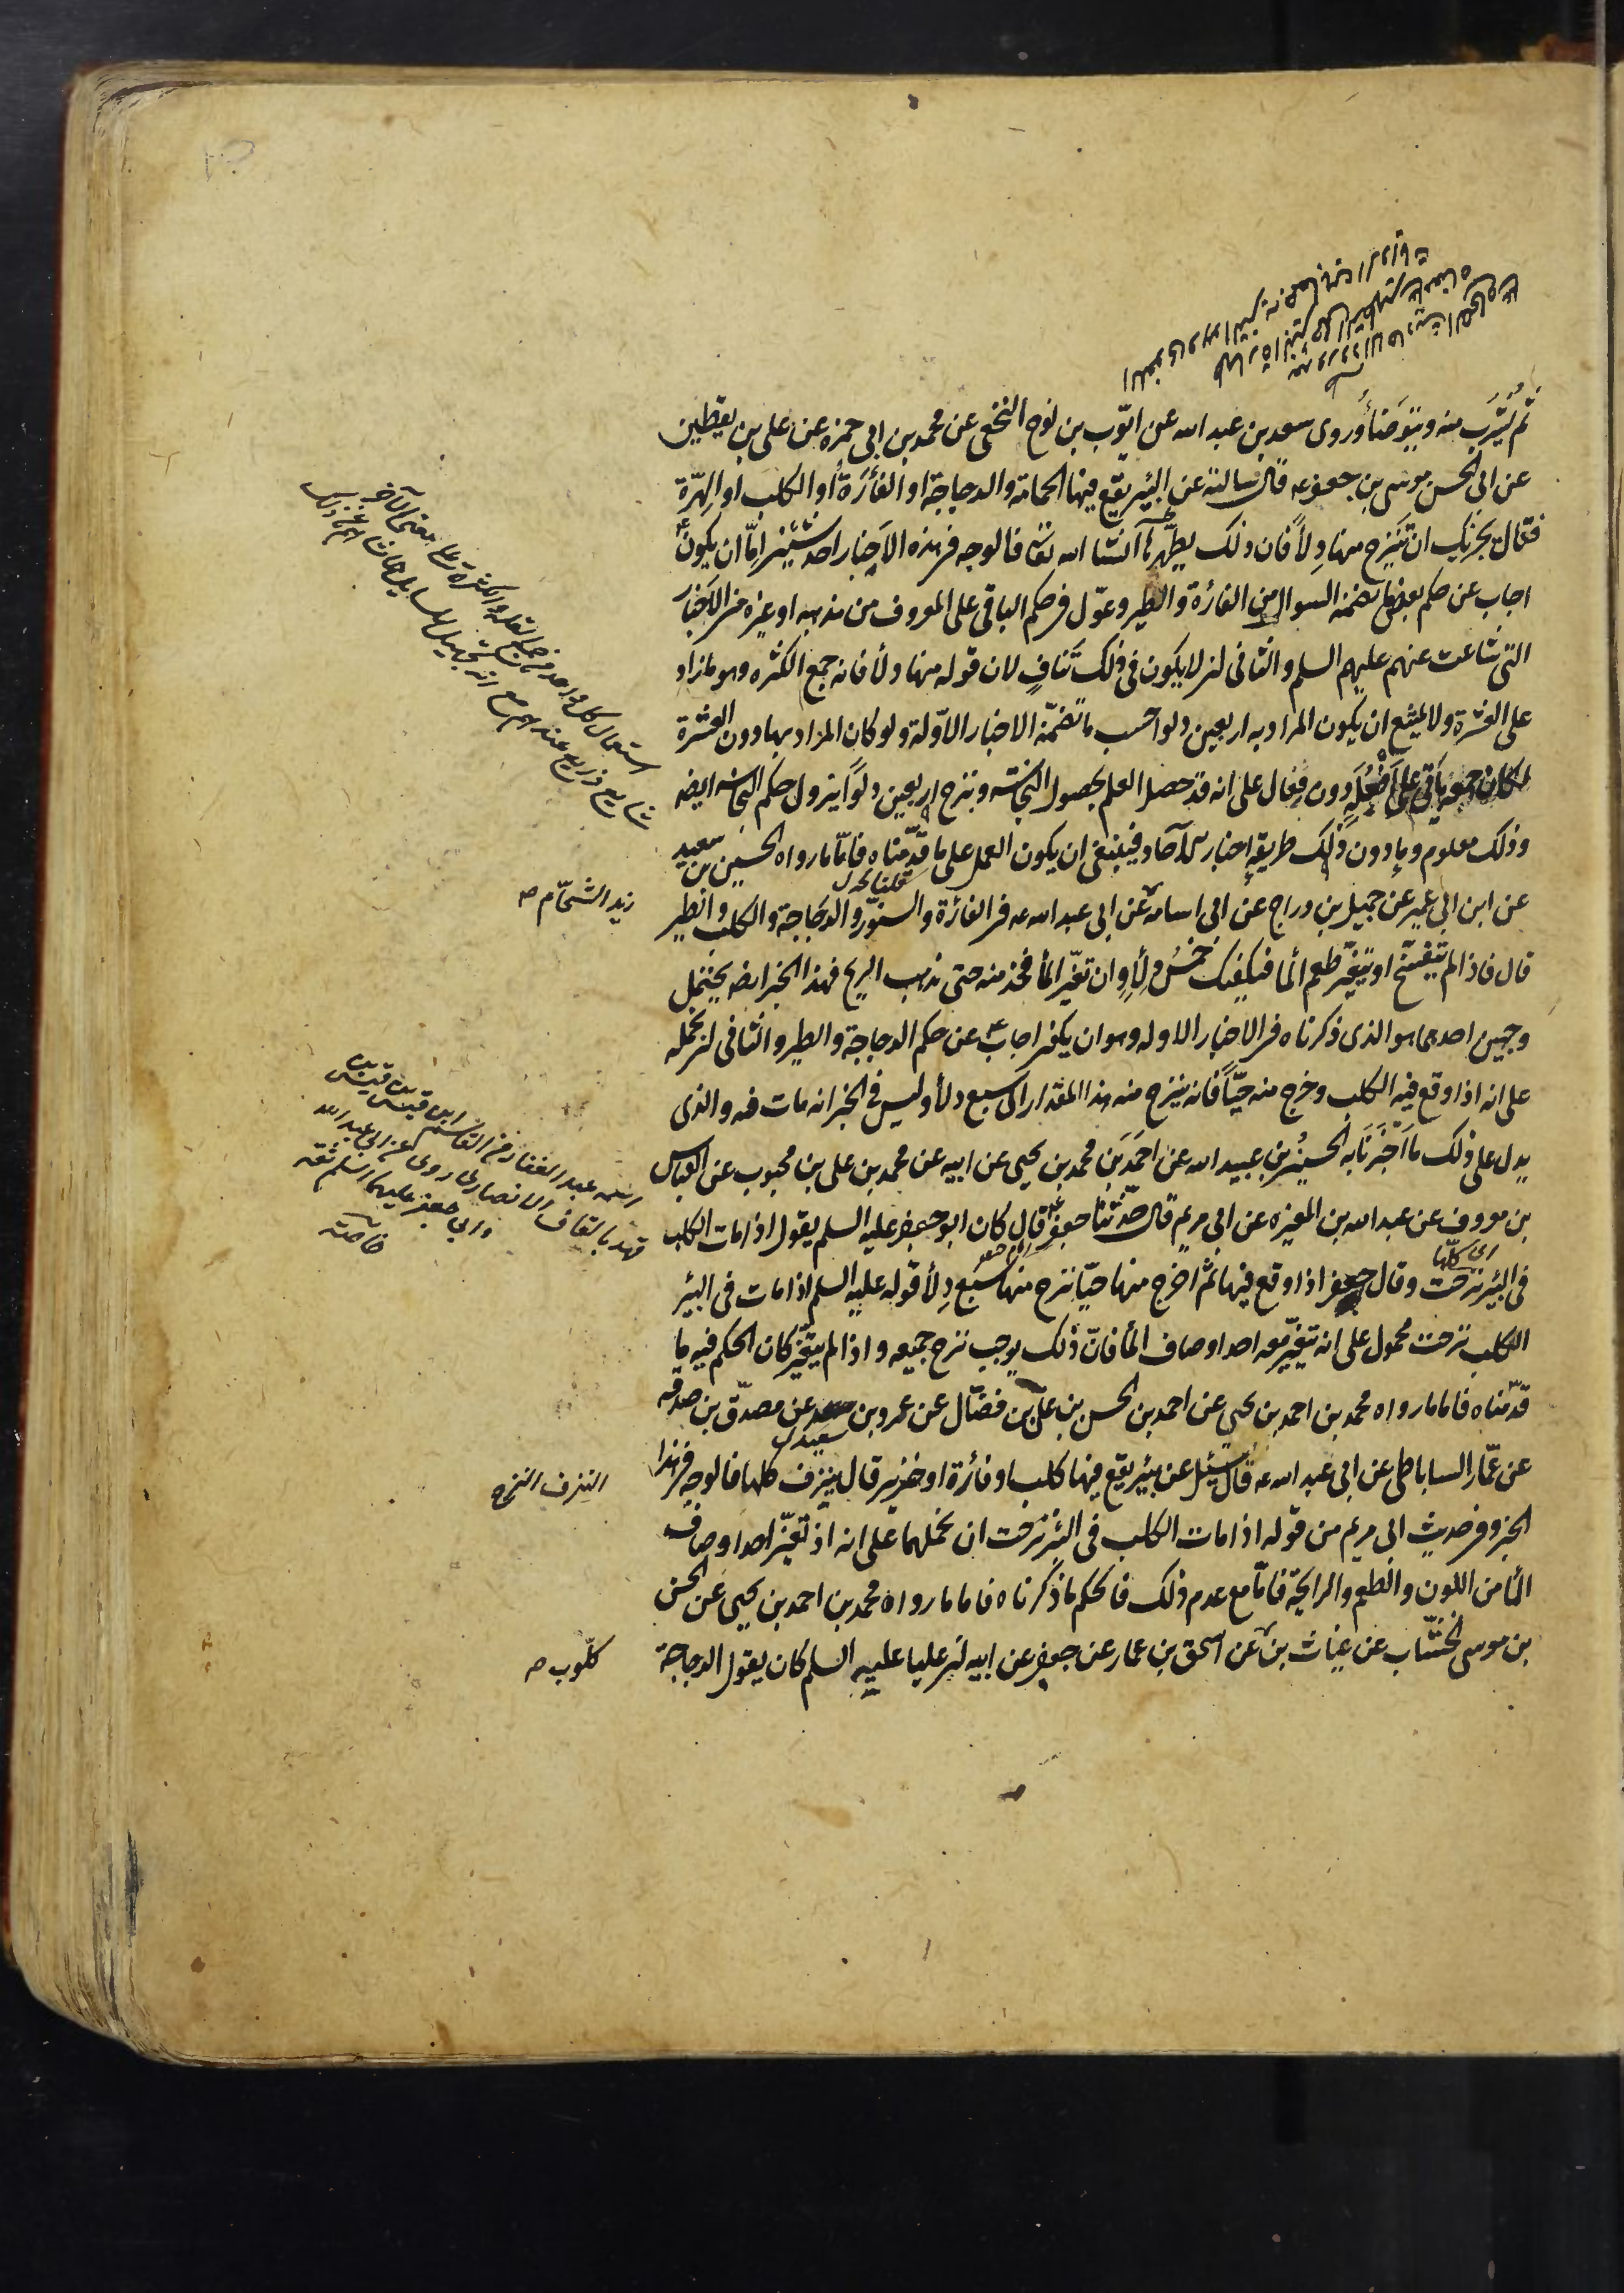 ثم يشرب منه ويتوضأ وروى سعد بن عبد الله عن ايّوب بن نوح النخعى عن محمد بن ابى حمزه عن على بن يقطين
عن ابى الحسن موسى بن جعفر عه قال سالته عن البئر يقع فيها الحمامة والدجاجة او الفأرة أو الكلب او الهرّة
فقال يجزيك ان تنزح منها دلأ فان ذلك يطهرها انشا الله تعا فالوجه فى هذه الاخبار احد شيئين امّا ان يكون
اجاب عن حكم بعض ما تضمنه السوال من الفارة والطير وعوّل فى حكم الباقى على المعروف من مذهبه او غيره من الاخبار
التى شاعت عنهم عليهم السلم والثانى ان لا يكون فى ذلك تناف لان قوله منها دلأ فانه جمع الكثره وهو مازاد
على العشرة ولا يمتنع ان يكون المراد به اربعين دلوا حسب ما تضمّنه الاخبار الاوّلة ولو كان المراد بها دون العشرة
لكان جمعه ياتى على افعلة دون فعال على انه قد حصل العلم بحصول النجاسة وبنزح اربعين دلوا يزول حكم النجاسه ايضه
وذلك معلوم وما دون ذلك طريقه اخبار آحاد فينبغى ان يكون العمل على ما قدّمناه فامّا ما رواه الحسين بن سعيد
قلناه
عن ابن ابى عمير عن جميل بن دراج عن ابى اسامة عن ابى عبد الله عه فى الفارة والسنوّر والدجاجة والكلب والطير
زيد الشحّام
قال فاذا لم يتفسّخ او يتغيّر طعم الما فيكفيك خمس دلأ وان تغيّر الما فخذ منه حتى يذهب الريح فهذا الخبر ايضه يحتمل
وجهين احدهما هو الذى ذكرناه فى الاخبار الاوله وهو ان يكون اجاب عن حكم الدجاجة والطير والثانى ان نحمله
على انه اذا وقع فيه الكلب وخرج منه حيّا فانه ينزح منه هذا المقدار الى سبع دلأ وليس فى الخبر انه مات فيه والذى
يدل على ذلك ما أخبرنا به الحسين بن عبيد الله عن احمد بن محمد بن يحيى عن ابيه عن محمد بن على بن محبوب عن العباس
بن معروف عن عبد الله بن المغيره عن ابى مريم قال حدّثنا جعفر قال كان ابو جعفر عليه السلم يقول اذا مات الكلب
اى كلّها
فى البئر نزحت وقال جعفر اذا وقع فيها ثم اخرج منها حيّا نزح منها سبع دلأ قوله عليه السلم اذا مات فى البئر
الكلب نزحت محمول على انه تغيّر معه احد اوصاف الما فانّ ذلك يوجب نزح جميعه واذا لم يتغيّر كان الحكم فيه ما
قدّمناه فاما ما رواه محمد بن احمد بن يحيى عن احمد بن الحسن بن علىّ بن فضّال عن عمرو بن سعيد عن مصدّق بن صدقه
عن عمّار الساباطى عن ابى عبد الله عه قال سئل عن بئر يقع فيها كلب او فأرة او خنزير قال ينزف كلها فالوجه فى هذا
النزف النزح
الخبر وفى حديث ابى مريم من قوله اذا مات الكلب فى البئر نزحت ان نحملهما على انه اذا تغيّر احد اوصاف
الما من اللون والطعم والرايحة فامّا مع عدم ذلك فالحكم ما ذكرناه فاما ما رواه محمد بن احمد بن يحيى عن الحسن
بن موسى الخشّاب عن غياث بن عن اسحق بن عمار عن جعفر عن ابيه ان عليا عليه السلم كان يقول الدجاجة
كلّوب
استعمال كل واحد من جمع القلة والكثرة على معنى الآخر
اسمه عبد الغفار بن القاسم ابن قيس بن قيس بن
قهد بالقاف الانصارى روى عن ابى عبد الله
وابى جعفر عليهما السلم ثقه